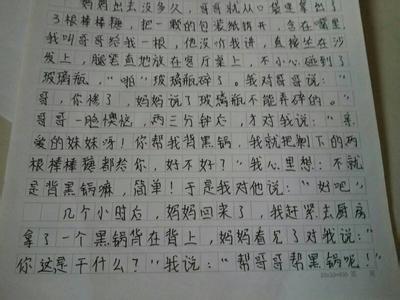 妈妈出去没多久，哥哥就从口袋里拿出了
3根棒棒糖，把一颗的包装纸拆开，含在嘴里
我叫哥哥给我一根，他没听我讲，直接坐在沙
发上，腿笔直地放在客厅桌上，不小心碰到了
玻璃瓶，“啪”玻璃瓶碎了。我对哥哥说：“
哥，你惨了，妈妈说了玻璃瓶不能弄碎的。”
哥哥一脸懊恼，两三分钟后，才对我说：“亲
爱的妹妹呀！你帮我背黑锅，我就把剩下的两
根棒棒糖都给你，好不好？”我心里想：不就
是背黑锅嘛，简单！于是我对他说：“好吧”
几个小时后，妈妈回来了，我赶紧去厨房
拿了一个黑锅背在背上，妈妈看见了对我说：
你这是干什么？”我说：“帮哥哥帮黑锅呢！